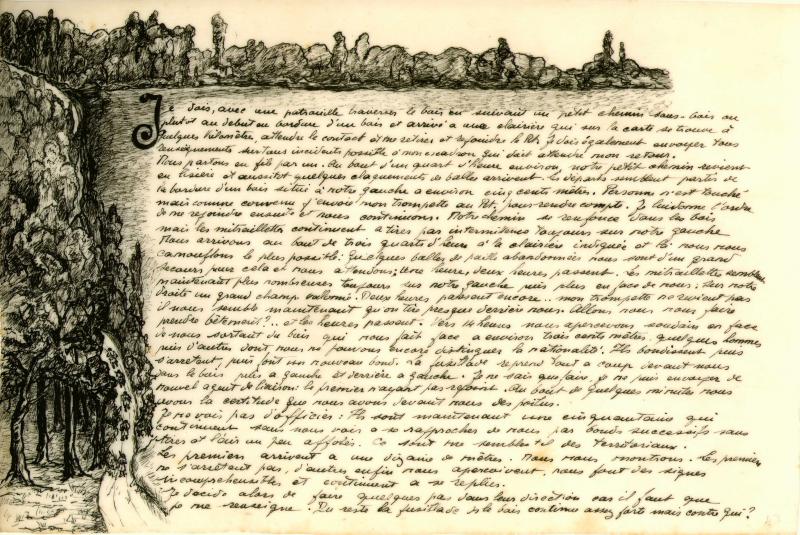 Je dois, avec une patrouille traverser le bois en suivant un petit chemin sous-bois ou
plutôt au début en bordure d'un bois et arrivé à une clairière qui sur la carte se trouve à
quelques kilomètre attendre le contact et me retirer et rejoindre le Pt. Je dois également envoyer tous
renseignements sur tous incidents possible à mon escadron qui doit attendre mon retour.
Nous partons en file par un. Au bout d'un quart d'heure environ notre petit chemin revient
en lisière et aussitôt quelques claquements de balles arrivent. Les départs semblent partir de
la bordure d'un bois situé à notre gauche a environ cinq cents mètres. Personne n'est touché
mais comme convenu j'envoie mon trompette au Pt, pour rendre compte. Je lui donne l'ordre
de me rejoindre ensuite et nous continuons. Notre chemin se renfonce dans les bois
mais les mitraillettes continuent a tirer par intermittence toujours sur notre gauche
Nous arrivons au bout de trois quarts d'heure à la clairière indiquée et là nous nous
camouflons le plus possible. Quelques balles de paille abandonnées nous sont d'un grand
secours pour cela et nous attendons; une heure, deux heures passent. Les mitraillettes semblent
maintenant plus nombreuses toujours sur notre gauche puis plus en face de nous. Sur notre
droite un grand champ vallonné. Deux heures passent encore... mon trompette ne revient pas
il nous semble maintenant qu'on tire presque derrière nous. Allons nous nous faire
prendre bêtement?.. et les heures passent. Vers 14 heures nous apercevons soudain en face
de nous sortant du bois qui nous fait face a environ trois cents mètres quelques hommes
puis d'autres dont nous ne pouvons encore distinguer la nationalité. Ils bondissent puis
s'arretent, puis font un nouveau bond. La fusillade reprend tout a coup devant nous
dans le bois puis a gauche et derrière a gauche. Je ne sais que faire, je ne puis envoyer de
nouvel agent de liaison: le premier n'ayant pas rejoint. Au bout de quelques minutes nous
avons la certitude que nous avons devant nous des poilus.
Je ne vois pas d'officier: Ils sont maintenant une cinquantaine qui
continuent sans nous voir a se rapprocher de nous par bonds successifs sans
tirer et l'air un peu affolés. Ce sont me semble t'il des territoriaux.
Les premiers arrivent a une dizaine de mètres. Nous nous montrons. Les premiers
ne s'arrêtant pas, d'autres enfin nous aperçoivent, nous font des signes
incompréhensibles et continuent a se replier.
Je décide alors de faire quelques pas dans leur direction car il faut que
je me renseigne. Du reste la fusillade ds le bois continue assez forte mais contre qui?